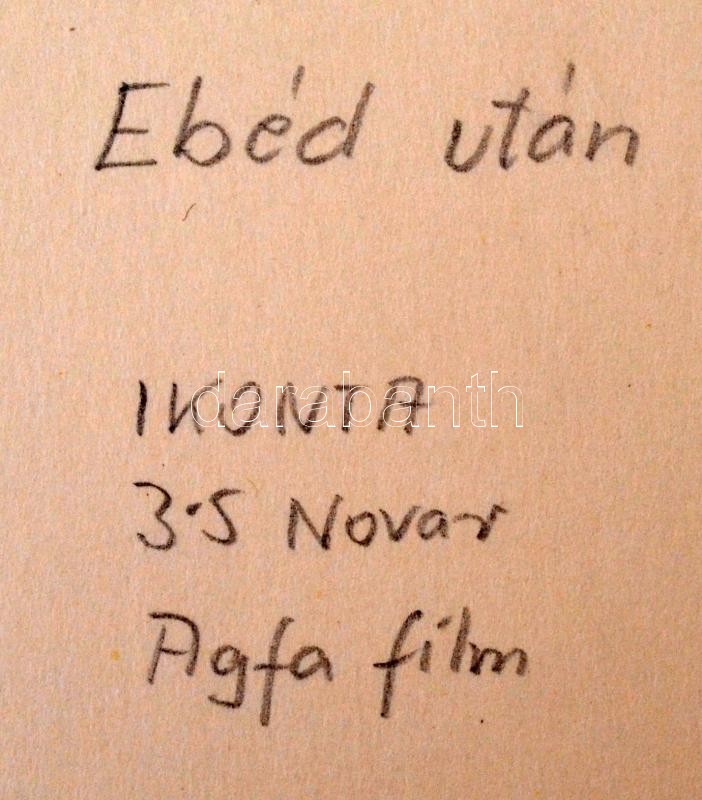 Ebéd után
IKONTA
darabanth
3.5 Novar
Agfa film